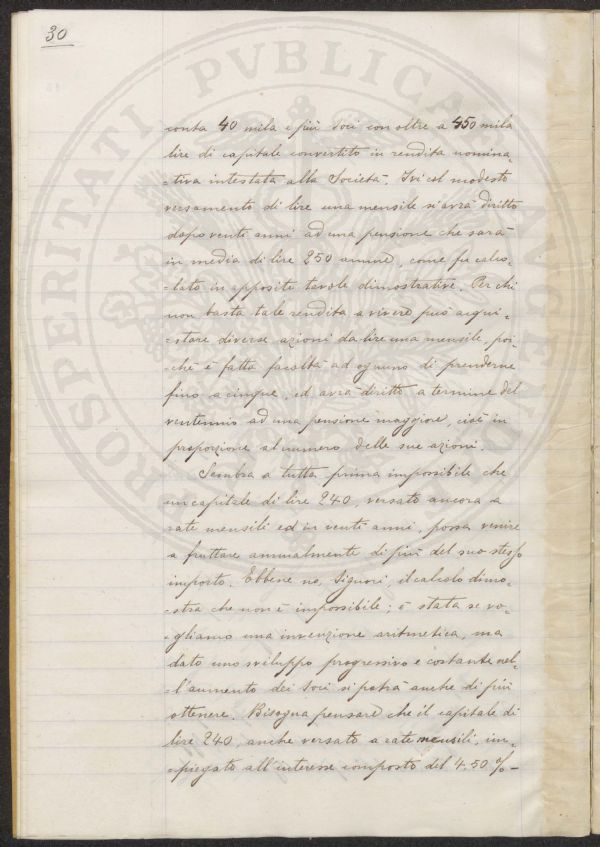 30
PROSPERITATI PVBLICAE AVGENDAE
conta 40 mila e più soci con oltre a 450 mila
lire di capitale convertito in rendita nomina-
-tiva intestata alla Società. Ivi col modesto
versamento di lire una mensile si avrà diritto
dopo venti anni ad una pensione che sarà
in media di lire 250 annue, come fu calco-
-lato in apposite tavole dimostrative. Per chi
non basta tale rendita a vivere può acqui-
-stare diverse azioni da lire una mensile, poi-
-chè è fatta facoltà ad ognuno di prenderne
fino a cinque, ed avrà diritto a termine del
ventennio ad una pensione maggiore, cioè in
proporzione al numero delle sue azioni.
Sembra a tutta prima impossibile che
un capitale di lire 240, versato ancora a
rate mensili ed in venti anni, possa venire
a fruttare annualmente di più del suo stesso
importo. Ebbene no, Signori, il calcolo dimo-
-stra che non è impossibile; è stata se vo-
-gliamo una invenzione aritmetica, ma
dato uno sviluppo progressivo e costante nel-
-l'aumento dei soci si potrà anche di più
ottenere. Bisogna pensare che il capitale di
lire 240, anche versato a rate mensili, im-
-piegato all'interesse composto del 4.50 %-